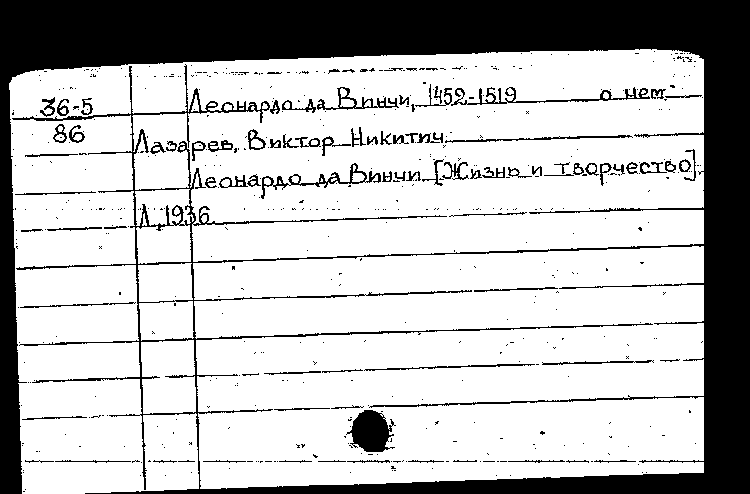 36-5 Леонардо да Винчи, 1452-1519 о нем.
86 Лазарев, Виктор Никитич.
Леонардо да Винчи. [Жизнь и творчество]
Л., 1936.